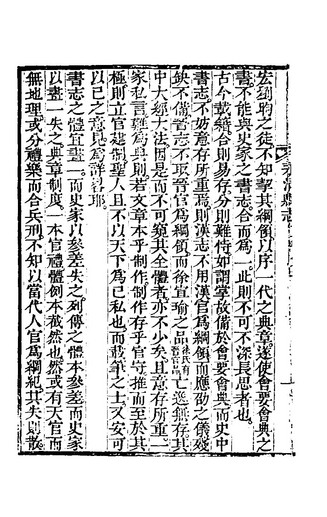 宏劉昫之徒不知擎其綱領以序一代之典章遂使會要會典之
書不能與史家之書志合而為一此則不可不深長思者也
古今載籍合則易存分則難恃如謂掌故備於會要會典而史中
書志不妨意存所重焉則漢志不用漢官為綱領而應劭之儀殘
缺不備晉志不取晉官為綱領而徐宣瑜之品徐氏有晉官品亡逸無存其
中大經大法因是而不可窺其全體者亦不少矣且意存所重一
家私言難為典則若文章本乎制作制作存乎官守推而至於其
極則立官建制聖人且不以天下為己私也而載筆之士又安可
以己之意見為詳畧耶
書志之體宜畫一而史家以參差失之列傳之體本參差而史家
以畫一失之典章制度一本官禮體例本截然也然或有天官而
無地理或分禮樂而合兵刑不知以當代人官為綱紀其失則散